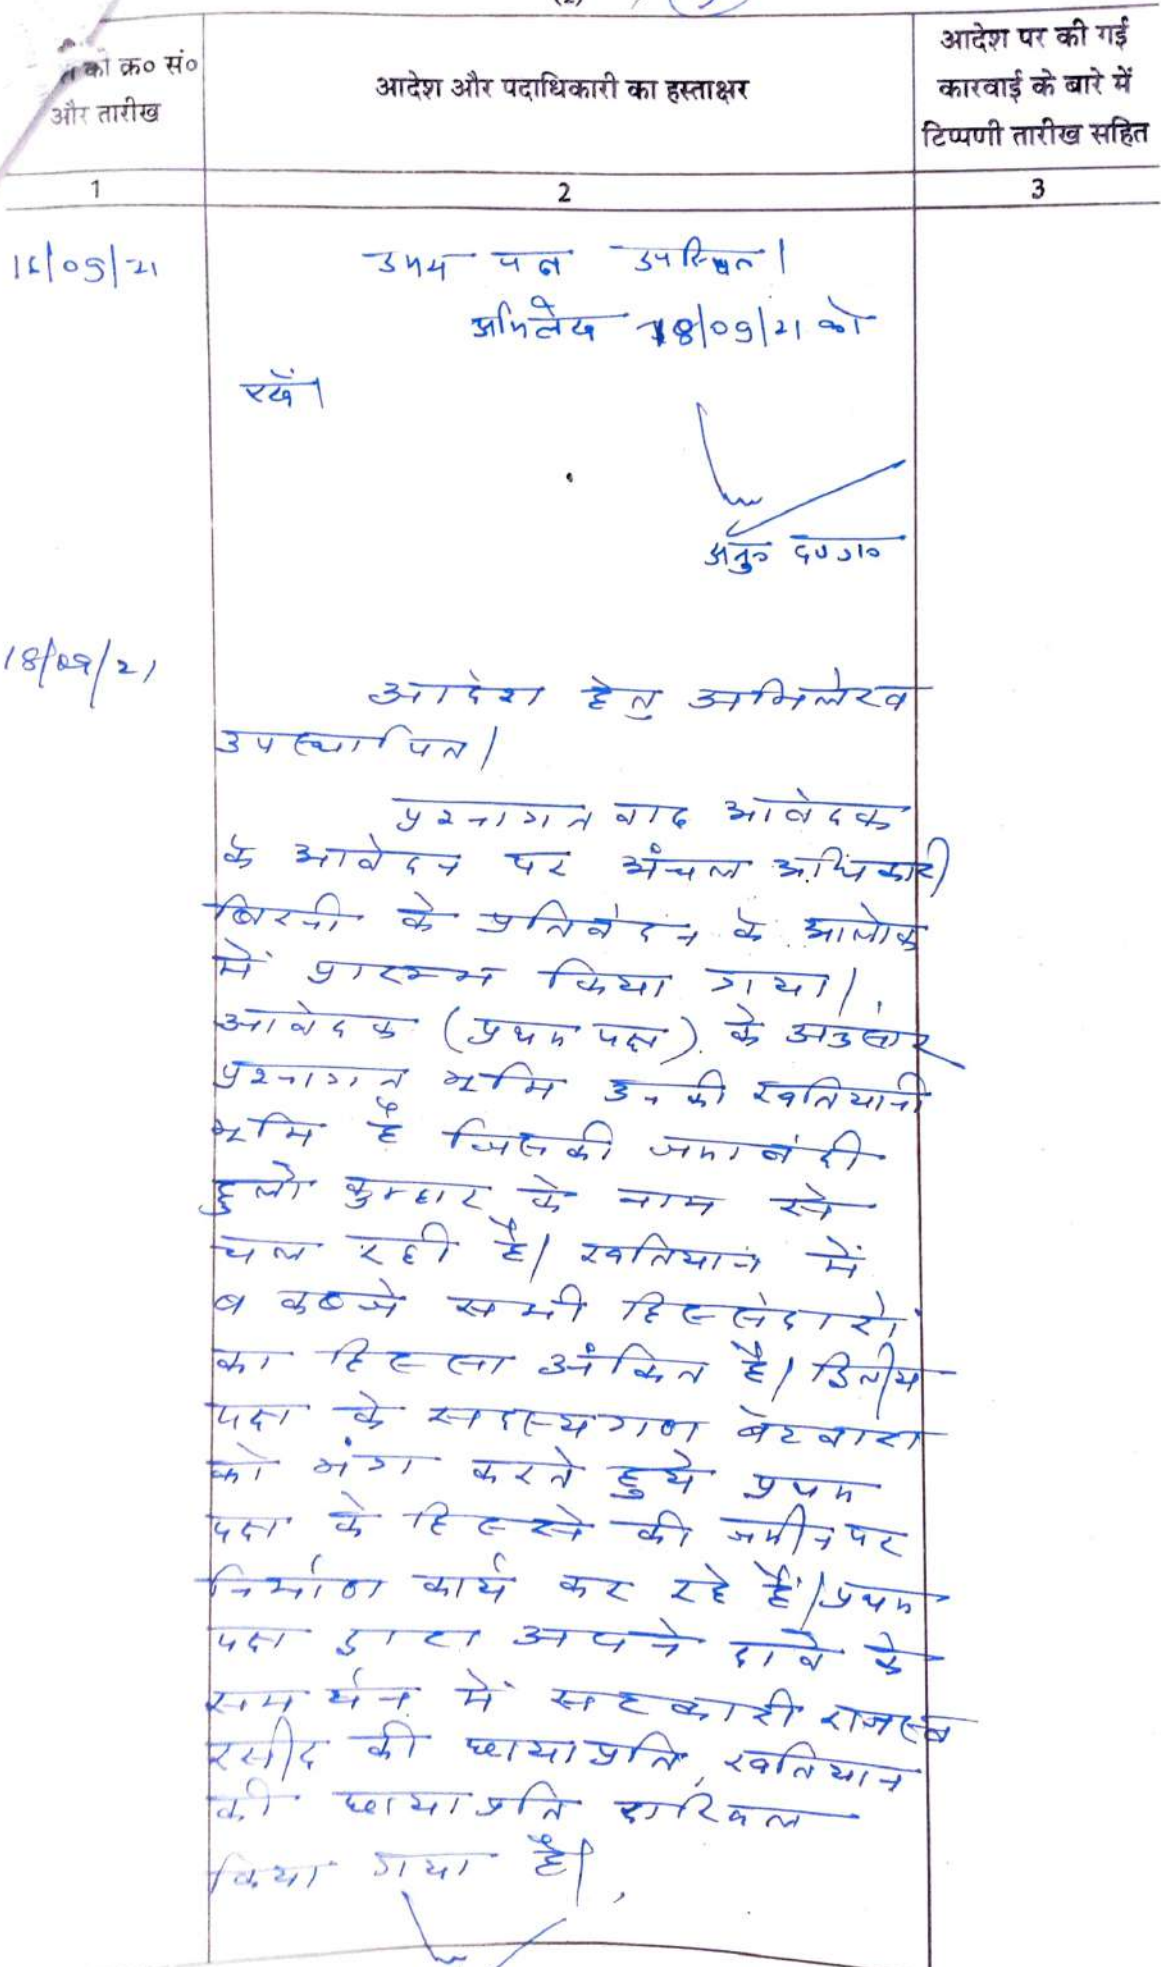 (2)
को क्र० सं०
और तारीख
आदेश और पदाधिकारी का हस्ताक्षर
आदेश पर की गई
कारवाई के बारे में
टिप्पणी तारीख सहित
1
2
3
उभय पक्ष उपस्थित।
अभिलेख 18/09/21 को
रखें।
अनु० दण्डा०
18/09/21
आदेश हेतु अभिलेख
उपस्थापित।
प्रश्नागत वाद आवेदक
के आवेदन पर अंचल अधिकारी
बिरनी के प्रतिवेदन के आलोक
में प्रारम्भ किया गया।
आवेदक (प्रथम पक्ष) के अनुसार
प्रश्नागत भूमि उनकी खतियानी
भूमि है जिसकी जमाबंदी
हुलो कुम्हार के नाम से
चल रही है। खतियान में
ब कब्जे सभी हिस्सेदारों
का हिस्सा अंकित है। द्वितीय
पक्ष के सदस्यगण बंटवारा
को भंग करते हुये प्रथम
पक्ष के हिस्से की जमीन पर
निर्माण कार्य कर रहे हैं। प्रथम
पक्ष द्वारा अपने दावे के
समर्थन में सरकारी राजस्व
रसीद की छायाप्रति, खतियान
की छायाप्रति दाखिल
किया गया है।